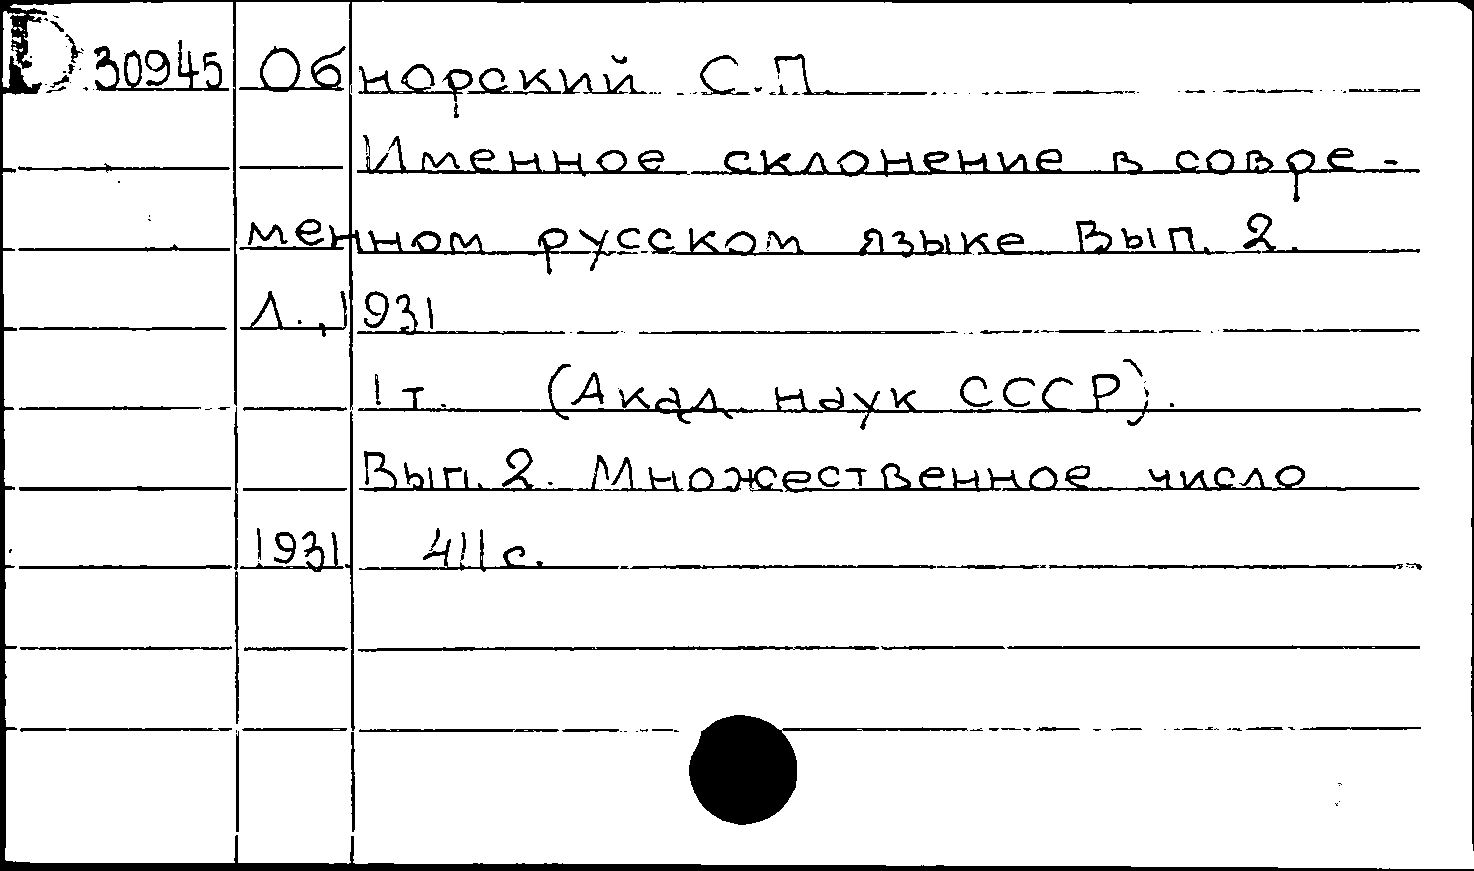 D 30945 Обнорский С.П.
Именное склонение в совре-
менном русском языке Вып. 2.
Л., 1931
1 т. (Акад. наук СССР).
Вып. 2. Множественное число
1931. 411 с.